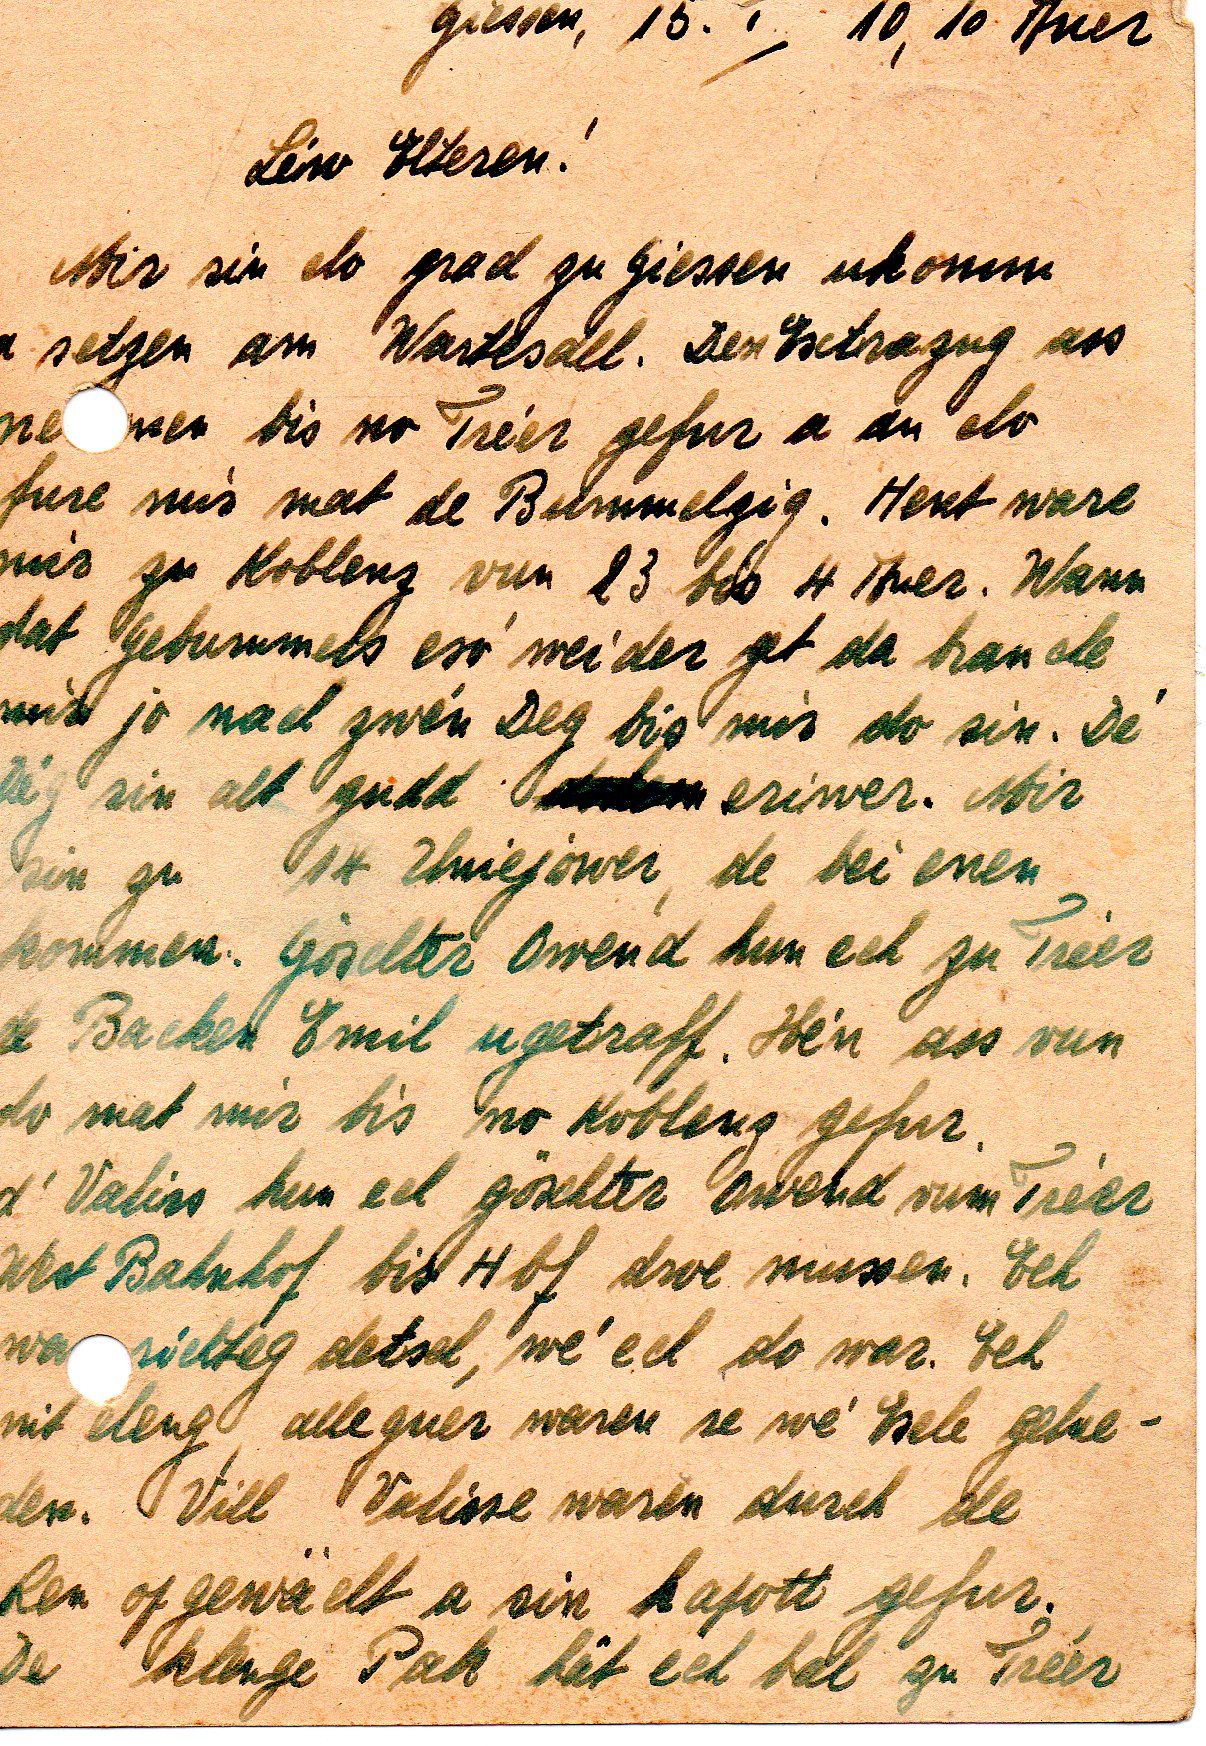 Giessen, 15. 10,10 Auer
Léiw Elteren!
Mir sin elo grad zu Giessen ukomm
a setzen am Wartesall. Den Extrazug ass
bis no Tréier gefur a an elo
fure mir mat de Bummelzig. Hent ware
mir zu Koblenz vun 23 bis 4 Auer. Wann
dat Gebummels esó weider get da brauche
mir jo nach zwén Deg bis mir do sin. Dé
Dég sin alt gudd eriwer. Mir
sin zu 14 de bei enen
kommen. Göschter Owend hun ech zu Tréier
de Backen Emil ugetraff. Hén ass vun
do mat mir bis no Koblenz gefur.
d'Valiss hun ech göschter Owend vum Tréier
West Bahnhof bis Hbf droe mussen. Ech
richteg détsch, wé ech do war. Ech
nit eleng, alleguer waren se wé Esele gelue-
den. Vill Valisse waren durch de
Ren opgeweächt a sin kapott gefur.
De klenge Pak hät ech bal zu Tréier